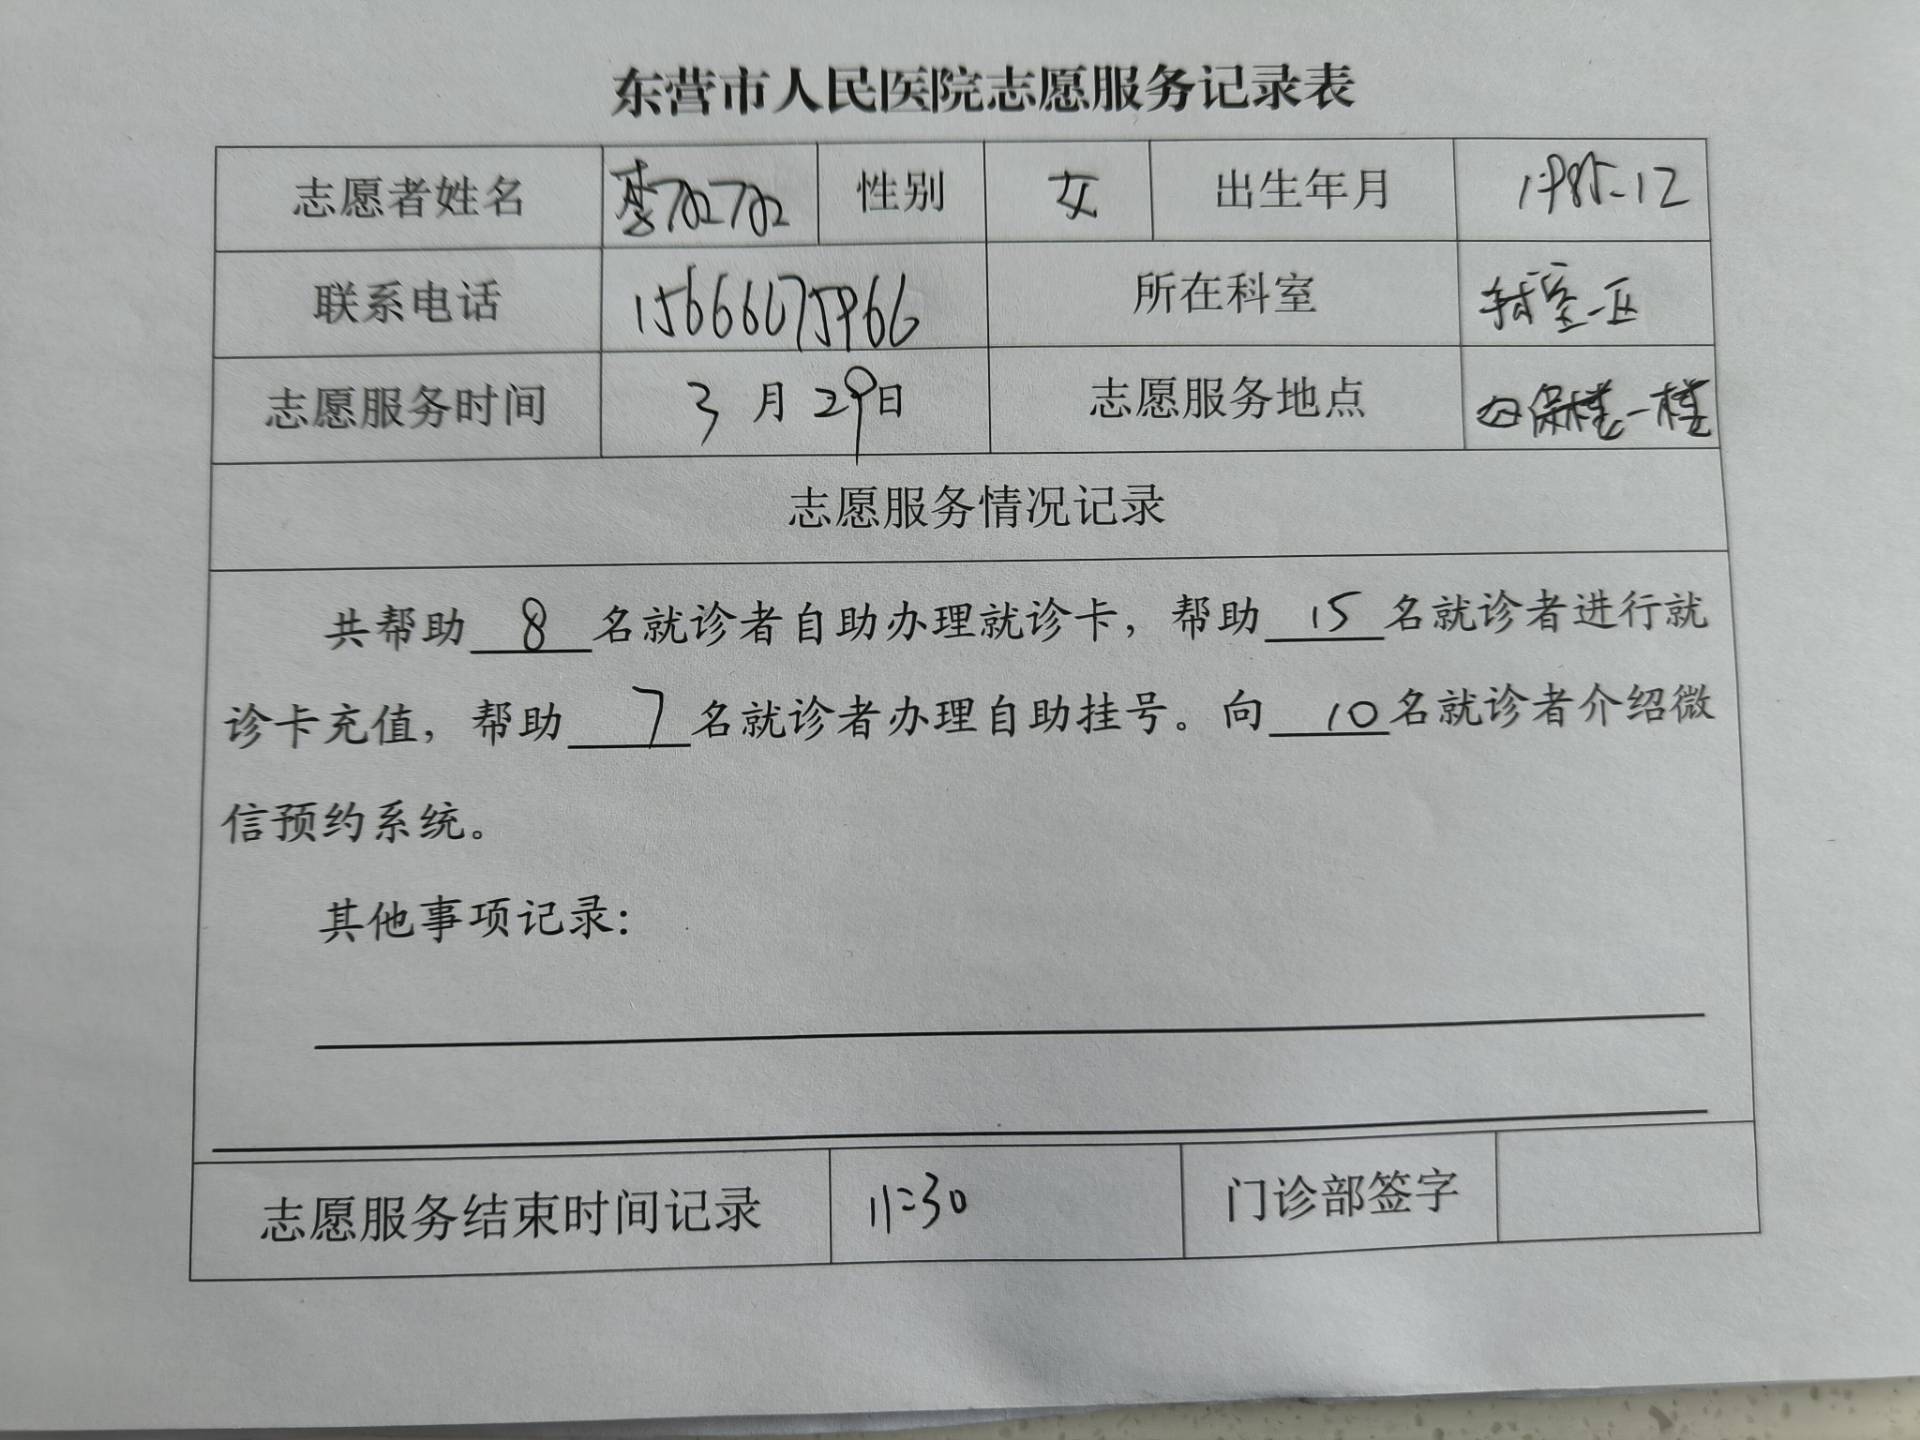 东营市人民医院志愿服务记录表
志愿者姓名 李 性别 女 出生年月 1985-12
联系电话 15666675966 所在科室 室一区
志愿服务时间 3月29日 志愿服务地点 保楼一楼
志愿服务情况记录
共帮助 8 名就诊者自助办理就诊卡，帮助 15 名就诊者进行就
诊卡充值，帮助 7 名就诊者办理自助挂号。向 10 名就诊者介绍微
信预约系统。
其他事项记录：
志愿服务结束时间记录 11:30 门诊部签字